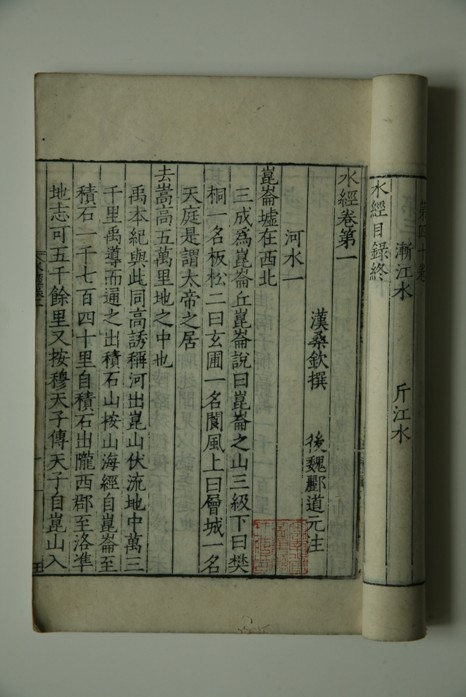 漸江水 斤江水
水經目錄終
水經卷第一
漢桑欽撰 後魏酈道元注
河水一
崑崙墟在西北
三成爲崑崙丘崑崙說曰崑崙之山三級下曰樊
桐一名板松二曰玄圃一名閬風上曰層城一名
天庭是謂太帝之居
去嵩高五萬里地之中也
禹本紀與此同高誘稱河出崑山伏流地中萬三
千里禹導而通之出積石山按山海經自崑崙至
積石一千七百四十里自積石出隴西郡至洛準
地志可五千餘里又按穆天子傳天子自崑山入